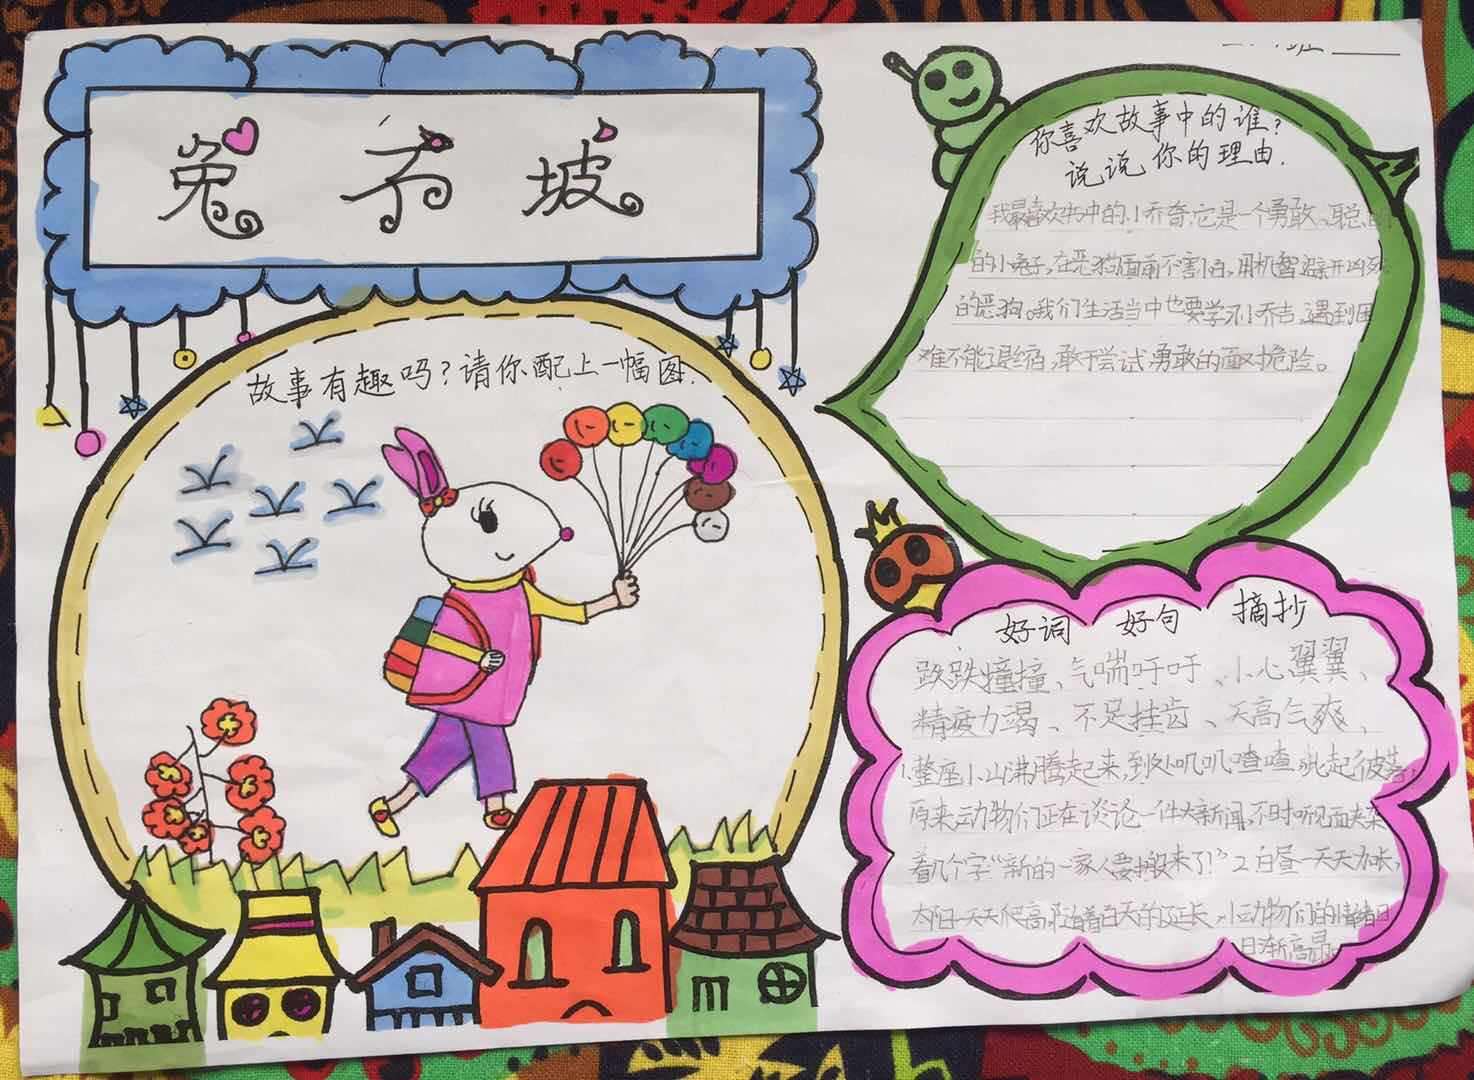 兔子坡
班
故事有趣吗?请你配上一幅图.
你喜欢故事中的谁?
说说你的理由.
我最喜欢书中的小乔奇,它是一个勇敢、聪明
的小兔子,在恶狗面前不害怕,用机智避开凶残
的恶狗。我们生活当中也要学习小乔吉,遇到困
难不能退缩,敢于尝试,勇敢的面对危险。
好词 好句 摘抄
跌跌撞撞、气喘吁吁、小心翼翼、
精疲力竭、不足挂齿、天高气爽、
1.整座小山沸腾起来,到处叽叽喳喳,此起彼落,
原来动物们正在谈论一件大新闻,不时听见面夹杂
着几个字“新的一家人要搬来了!”2.白昼一天天加长,
太阳一天天爬高,随着白天的延长,小动物们的情绪日
日渐高昂。